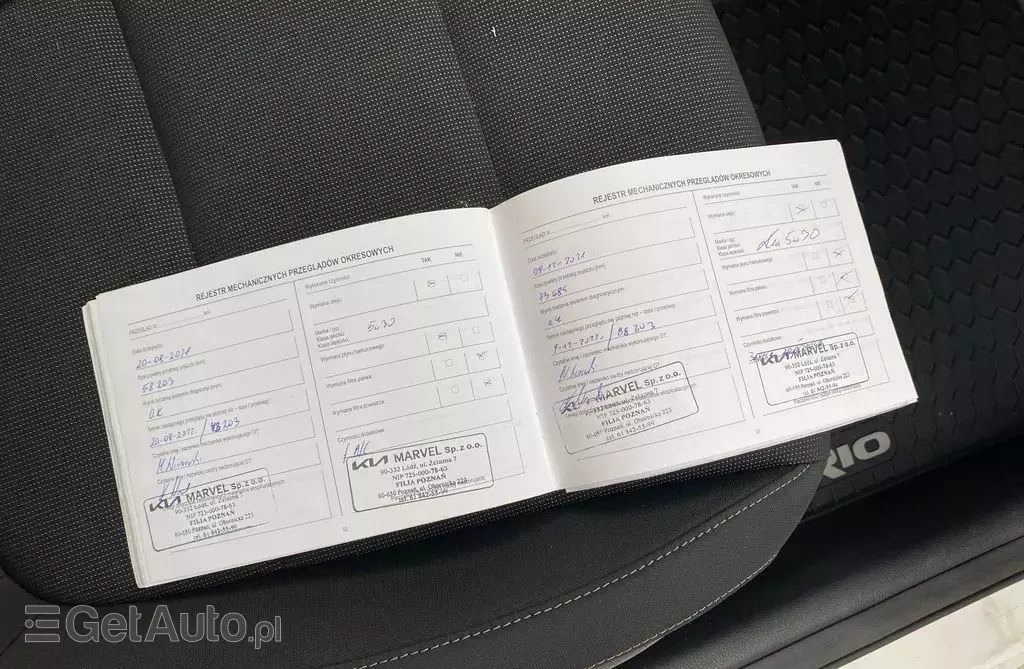 REJESTR MECHANICZNYCH PRZEGLĄDÓW OKRESOWYCH
PRZEGLĄD V: km
Data przeglądu:
20-08-2021
Rzeczywisty przebieg pojazdu [km]:
58 203
Wynik badania testerem diagnostycznym:
O.K
Termin następnego przeglądu nie później niż – data / przebieg:
20-08-2022 /
Czytelne imię i nazwisko mechanika wykonującego OT:
Czytelne imię i nazwisko osoby nadzorującej OT:
KIA MARVEL Sp. z o.o.
90-332 Łódź, ul. Żelazna 7
NIP 725-000-78-63
FILIA POZNAŃ
60-650 Poznań, ul. Obornicka 223
tel. 61 842-55-99
Wykonane czynności: TAK NIE
Wymiana oleju:
Marka i typ:
Klasa jakości:
Klasa lepkości:
5W30
Wymiana płynu hamulcowego:
Wymiana filtra paliwa:
Wymiana filtra powietrza:
Czynności dodatkowe:
KIA MARVEL Sp. z o.o.
90-332 Łódź, ul. Żelazna 7
NIP 725-000-78-63
FILIA POZNAŃ
60-650 Poznań, ul. Obornicka 223
tel. 61 842-55-99
52
REJESTR MECHANICZNYCH PRZEGLĄDÓW OKRESOWYCH
PRZEGLĄD V: km
Data przeglądu:
09-12-2021
Rzeczywisty przebieg pojazdu [km]:
73 685
Wynik badania testerem diagnostycznym:
O.K
Termin następnego przeglądu nie później niż – data / przebieg:
9-12-2022 / 88 203
Czytelne imię i nazwisko mechanika wykonującego OT:
Czytelne imię i nazwisko osoby nadzorującej OT:
KIA MARVEL Sp. z o.o.
90-332 Łódź, ul. Żelazna 7
NIP 725-000-78-63
FILIA POZNAŃ
60-650 Poznań, ul. Obornicka 223
tel. 61 842-55-99
Wykonane czynności: TAK NIE
Wymiana oleju:
Marka i typ:
Klasa jakości:
Klasa lepkości:
5W30
Wymiana płynu hamulcowego:
Wymiana filtra paliwa:
Wymiana filtra powietrza:
Czynności dodatkowe:
KIA MARVEL Sp. z o.o.
90-332 Łódź, ul. Żelazna 7
NIP 725-000-78-63
FILIA POZNAŃ
60-650 Poznań, ul. Obornicka 223
tel. 61 842-55-99
RIO
GetAuto.pl